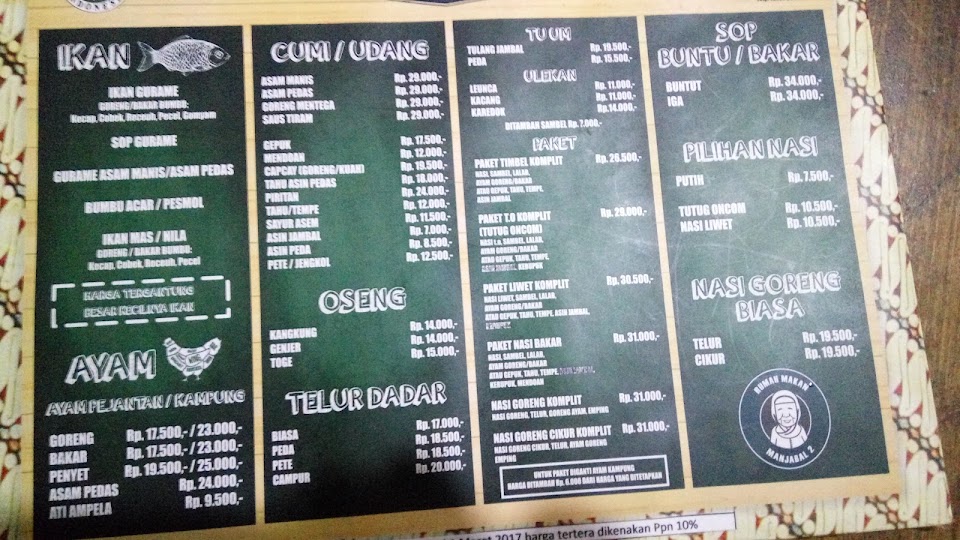 IKAN
IKAN GURAME
GORENG/BAKAR BUMBU:
Kecap, Cobek, Receuh, Pecel, Gumpam
SOP GURAME
GURAME ASAM MANIS/ASAM PEDAS
BUMBU ACAR / PESMOL
IKAN MAS / NILA
GORENG / BAKAR BUMBU:
Kecap, Cobek, Receuh, Pecel
HARGA TERGANTUNG
BESAR KECILNYA IKAN
AYAM
AYAM PEJANTAN / KAMPUNG
GORENG Rp. 17.500,- / 23.000,-
BAKAR Rp. 17.500,- / 23.000,-
PENYET Rp. 19.500,- / 25.000,-
ASAM PEDAS Rp. 24.000,-
ATI AMPELA Rp. 9.500,-
CUMI / UDANG
ASAM MANIS Rp. 29.000,-
ASAM PEDAS Rp. 29.000,-
GORENG MENTEGA Rp. 29.000,-
SAUS TIRAM Rp. 29.000,-
GEPUK Rp. 17.500,-
MENDOAN Rp. 12.000,-
CAPCAY (GORENG/KUAH) Rp. 19.500,-
TAHU ASIN PEDAS Rp. 18.000,-
PIRITAN Rp. 24.000,-
TAHU/TEMPE Rp. 12.000,-
SAYUR ASEM Rp. 11.500,-
ASIN JAMBAL Rp. 7.000,-
ASIN PEDA Rp. 8.500,-
PETE / JENGKOL Rp. 12.500,-
OSENG
KANGKUNG Rp. 14.000,-
GENJER Rp. 14.000,-
TOGE Rp. 15.000,-
TELUR DADAR
BIASA Rp. 17.000,-
PEDA Rp. 18.500,-
PETE Rp. 18.500,-
CAMPUR Rp. 20.000,-
TUUM
TULANG JAMBAL Rp. 19.500,-
PEDA Rp. 15.500,-
ULEKAN
LEUNCA Rp. 11.000,-
KACANG Rp. 11.000,-
KAREDOK Rp. 14.000,-
DITAMBAH SAMBEL Rp. 7.000,-
PAKET
PAKET TIMBEL KOMPLIT Rp. 26.500,-
NASI, SAMBEL, LALAR,
AYAM GORENG/BAKAR
ATAU GEPUK, TAHU, TEMPE,
ASIN JAMBAL
PAKET T.O KOMPLIT Rp. 29.000,-
(TUTUG ONCOM)
NASI t.o, SAMBEL, LALAR,
AYAM GORENG/BAKAR
ATAU GEPUK, TAHU, TEMPE,
KERUPUK
PAKET LIWET KOMPLIT Rp. 30.500,-
NASI LIWET, SAMBEL, LALAR,
AYAM GORENG/BAKAR
ATAU GEPUK, TAHU, TEMPE, ASIN JAMBAL,
PAKET NASI BAKAR Rp. 31.000,-
NASI, SAMBEL, LALAR,
AYAM GORENG/BAKAR
ATAU GEPUK, TAHU, TEMPE,
KERUPUK, MENDOAN
NASI GORENG KOMPLIT Rp. 31.000,-
NASI GORENG, TELUR, GORENG AYAM, EMPING
NASI GORENG CIKUR KOMPLIT Rp. 31.000,-
NASI GORENG CIKUR, TELUR, AYAM GORENG
EMPING
UNTUK PAKET DIGANTI AYAM KAMPUNG
HARGA DITAMBAH Rp. 6.000 DARI HARGA YANG DITETAPKAN
SOP
BUNTU / BAKAR
BUNTUT Rp. 34.000,-
IGA Rp. 34.000,-
PILIHAN NASI
PUTIH Rp. 7.500,-
TUTUG ONCOM Rp. 10.500,-
NASI LIWET Rp. 10.500,-
NASI GORENG
BIASA
TELUR Rp. 19.500,-
CIKUR Rp. 19.500,-
RUMAH MAKAN
MANJABAL 2
Maret 2017 harga tertera dikenakan Ppn 10%